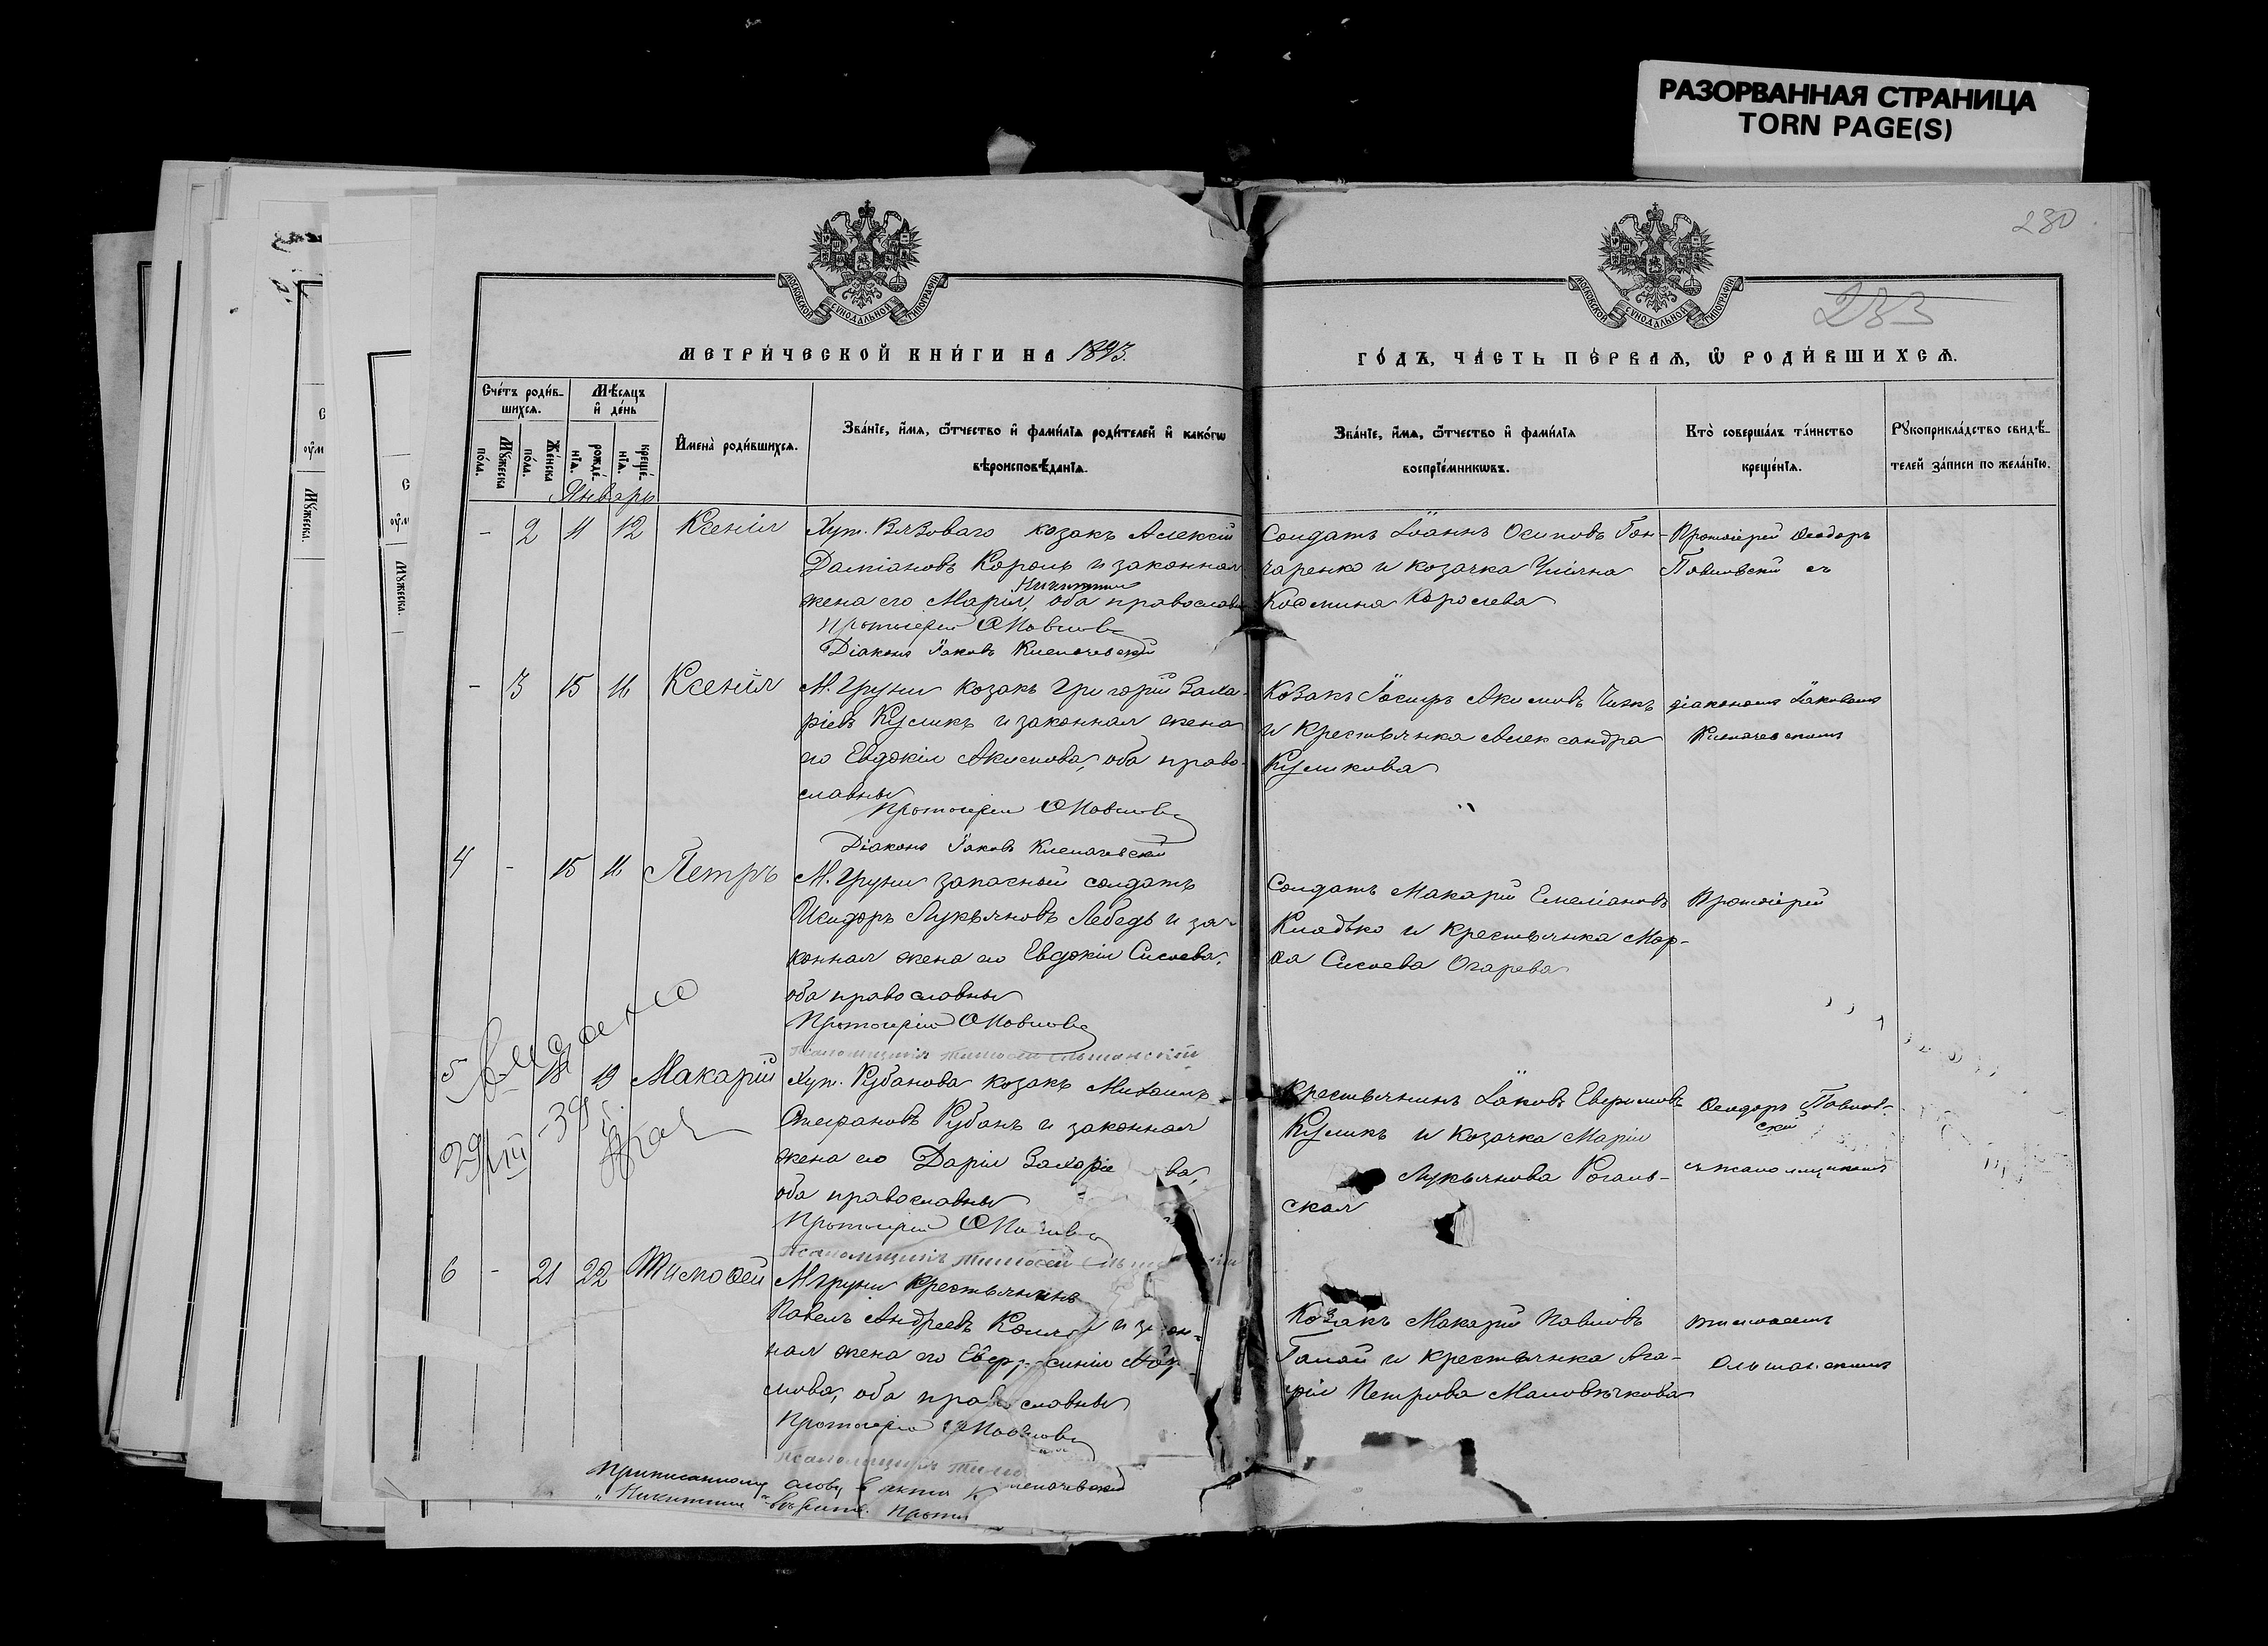 РАЗОРВАННАЯ СТРАНИЦА
TORN PAGE(S)
230
233
МОСКОВСКОЙ СѴНОДАЛЬНОЙ ТИПОГРАФІИ
МОСКОВСКОЙ СѴНОДАЛЬНОЙ ТИПОГРАФІИ
МЕТРИ́ЧЕСКОЙ КНИ́ГИ НА 1893.
ГО́ДЪ, ЧА́СТЬ ПЕ́РВАѦ, Ѿ РОДИ́ВШИХСѦ.
Сче́тъ роди́в-
шихсѧ.
Мѣ́сѧцъ
и҆ де́нь
Мꙋ́жеска
по́ла.
Же́нска
по́ла.
рожде́-
нїѧ.
креще́-
нїѧ.
И҆мена̀ роди́вшихсѧ.
Зва́нїе, и҆́мѧ, ѻ҆́тчество и҆ фами́лїѧ роди́телей и҆ како́гѡ
вѣроисповѣ́данїѧ.
Зва́нїе, и҆́мѧ, ѻ҆́тчество и҆ фами́лїѧ
воспрїе́мникѡвъ.
Кто̀ соверша́лъ та́инство
креще́нїѧ.
Рꙋкоприкла́дство свидѣ́-
телей за́писи по жела́нїю.
Январь
- 2 11 12 Ксенія
Хут. Вязоваго козакъ Алексій
Даміановъ Король и законная
Никитина
жена его Марія, оба православн
Протоіерей Ѳ Павловс
Діаконъ Іаковъ Клепачевскій
Солдатъ Іоаннъ Осиповъ Гон-
чаренко и козачка
Космина Королева
Протоіерей Ѳеодоръ
Павловскій съ
- 3 15 16 Ксенія
М. Груни козакъ Григорій Заха-
ріевъ Куликъ и законная жена
его Евдокія Акимова, оба право-
славны
Протоіерей Ѳ Павловс
Діаконъ Іаковъ Клепачевскій
Козакъ Акимовъ
и крестьянка Александра
Куликова
діакономъ Іаковомъ
Клепачевскимъ
4 - 15 16 Петръ
М. Груни запасный солдатъ
Исидоръ Лукьяновъ Лебедь и за-
конная жена его Евдокія Сисоева,
оба православны
Протоіерей Ѳ Павловс
Псаломщикъ Тимоѳей Ольшанскій
Солдатъ Макарій Емеліановъ
Кладько и крестьянка Мар-
ѳа Сисоева Огарева
Протоіерей
Выдано
29/VIII -39 г.
5 - 18 19 Макарій
Хут. Рубанова козакъ Михаилъ
Стефановъ Рубанъ и законная
жена его Дарія Захаріе ва,
оба православны
Протоіерей Ѳ Павловс
Псаломщикъ Тимоѳей
Крестьянинъ Іаковъ Евфимовъ
Куликъ и козачка Марія
Лукьянова Рогаль-
ская
Ѳеодоръ Павлов-
скій
съ псаломщикомъ
6 - 21 22 Тимоѳей
М Груни крестьянинъ
Павелъ Андреевъ и закон-
ная жена его Евфросинія
мова, оба православны
Протоіерей Ѳ Павловс
Псаломщикъ Тимо
Козакъ Макарій Павловъ
Галай и крестьянка Ага-
фія Петрова
Тимоѳеемъ
Ольшанскимъ
Приписанному слову в актѣ лепачевскій
"Никитина" вѣрить. Прото